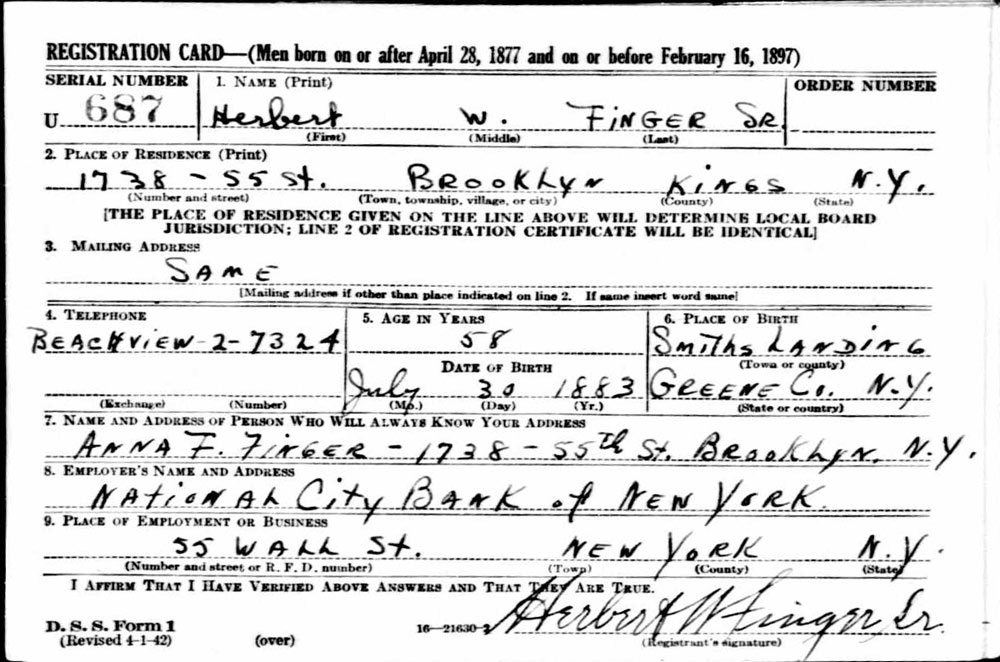 REGISTRATION CARD—(Men born on or after April 28, 1877 and on or before February 16, 1897)
SERIAL NUMBER 1. NAME (Print) ORDER NUMBER
U 687 Herbert W. FINGER SR.
(First) (Middle) (Last)
2. PLACE OF RESIDENCE (Print)
1738 - 55 St. BROOKLYN KINGS N.Y.
(Number and street) (Town, township, village, or city) (County) (State)
[THE PLACE OF RESIDENCE GIVEN ON THE LINE ABOVE WILL DETERMINE LOCAL BOARD
JURISDICTION; LINE 2 OF REGISTRATION CERTIFICATE WILL BE IDENTICAL]
3. MAILING ADDRESS
SAME
[Mailing address if other than place indicated on line 2. If same insert word same]
4. TELEPHONE 5. AGE IN YEARS 6. PLACE OF BIRTH
BEACHVIEW-2-7324 58 SMITHS LANDING
DATE OF BIRTH (Town or county)
July 30 1883 GREENE Co. N.Y.
(Exchange) (Number) (Mo.) (Day) (Yr.) (State or country)
7. NAME AND ADDRESS OF PERSON WHO WILL ALWAYS KNOW YOUR ADDRESS
ANNA F. FINGER - 1738 - 55th St. BROOKLYN. N.Y.
8. EMPLOYER'S NAME AND ADDRESS
NATIONAL City BANK of NEW YORK.
9. PLACE OF EMPLOYMENT OR BUSINESS
55 WALL St. NEW YORK N.Y.
(Number and street or R. F. D. number) (Town) (County) (State)
I AFFIRM THAT I HAVE VERIFIED ABOVE ANSWERS AND THAT THEY ARE TRUE.
D. S. S. Form 1 Herbert W Finger Sr.
(Revised 4-1-42) (over) 16—21630-2 (Registrant's signature)